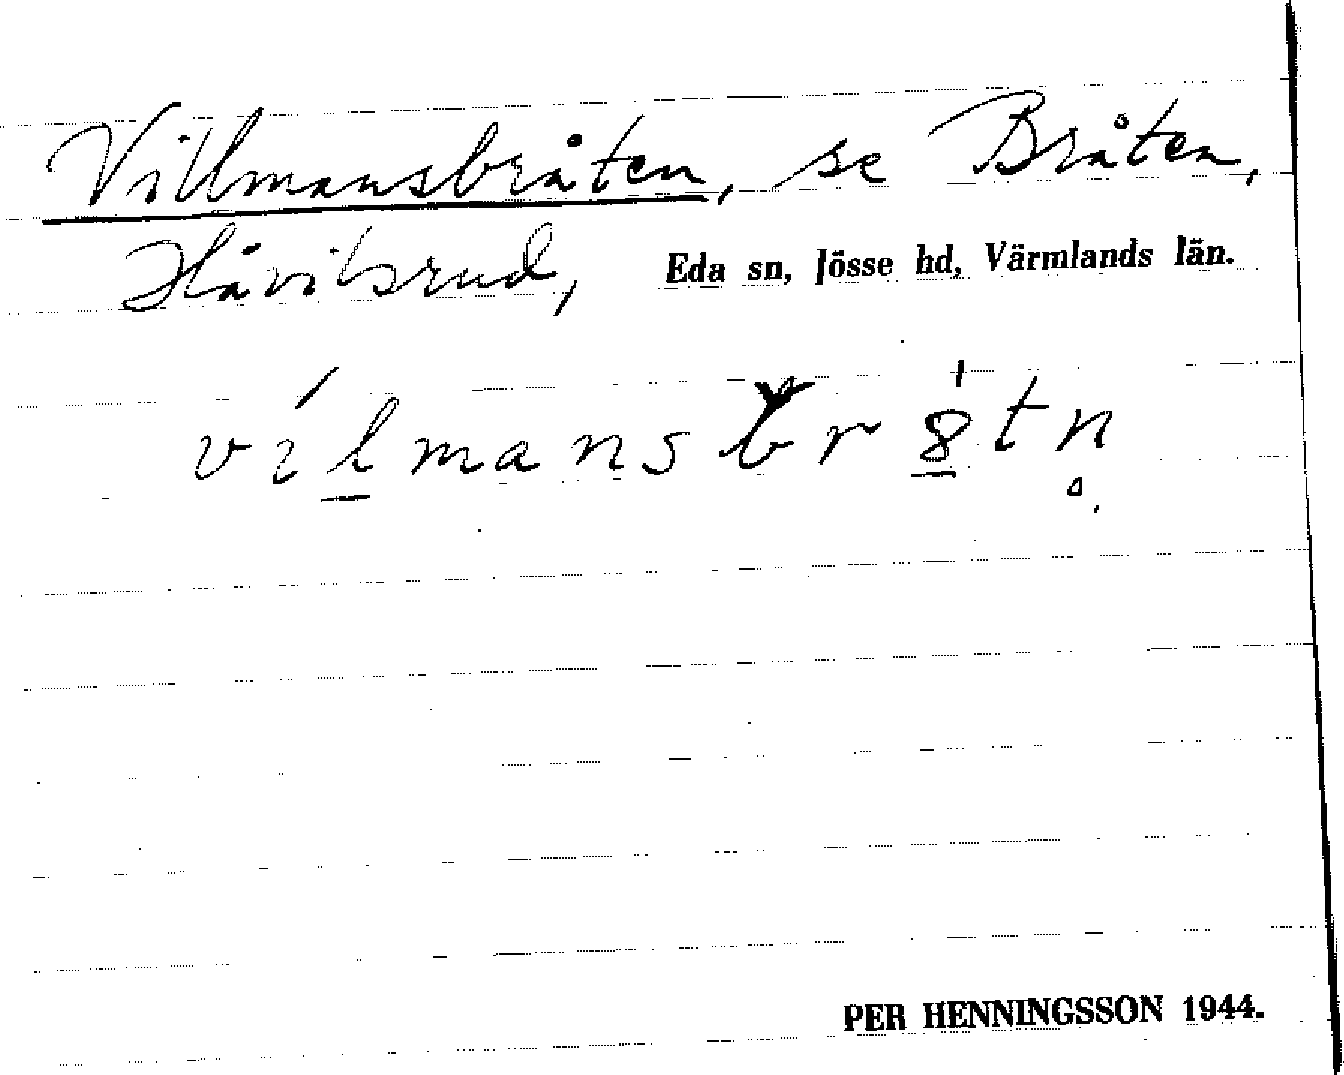 Villmansbråten, se Bråten,
Håvilsrud, Eda sn, Jösse hd, Värmlands län.
vílmansbr8̲tn̥
PER HENNINGSSON 1944.